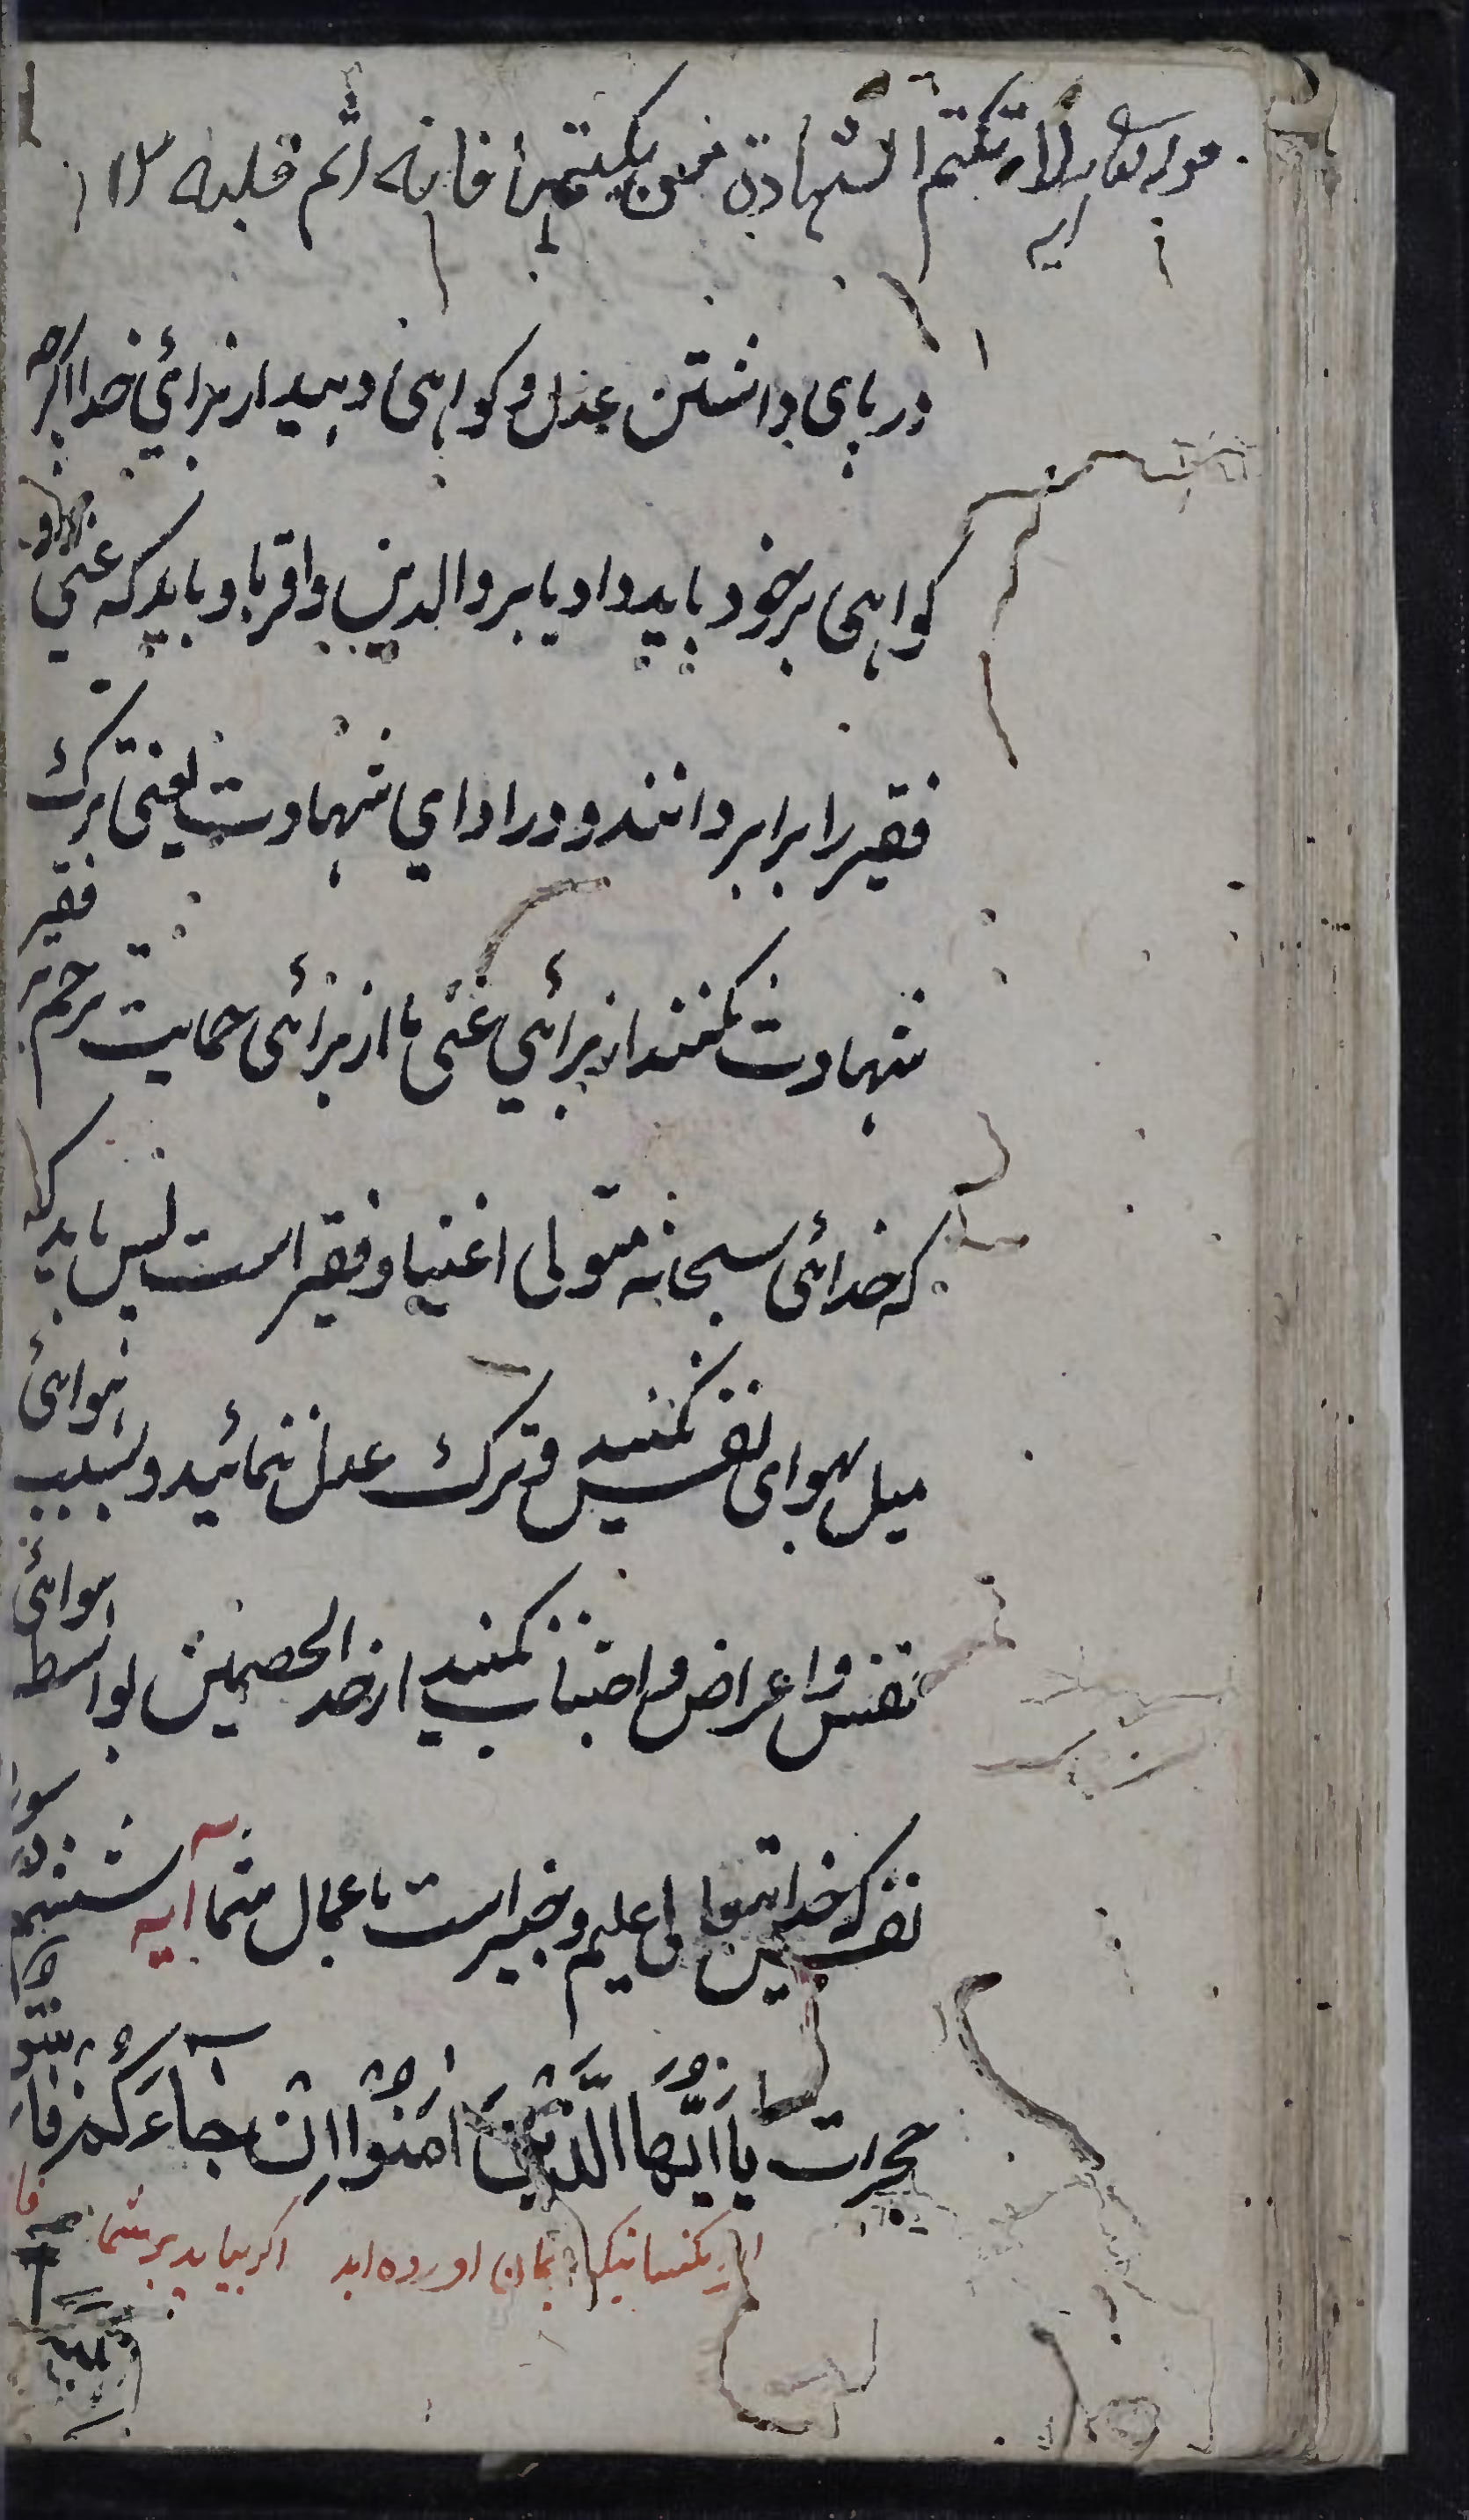 ولا تكتم الشهادة فمن يكتمها فانه اثم قلبه
در پای داشتن عدل و کواهی دهید از برائی خدا اکرچه
کواهی بر خود باید داد یا بر والدین و اقربا و باید که غنی
فقیر را برابر دانند و در ادای شهادت یعنی ترک
شهادت نکنند از برائی غنی یا از برائی حمایت ترحم بر فقیر
که خدائی سبحانه متولی اغنیا و فقیر است پس باید که
میل بهوای نفس نکنید و ترک عدل ننمائید و بسبب هوائی
نفس و اعراض و اجتناب نکنید از احد الخصمین بواسطه هوائی
نفس که خدا تعالی علیم و خبیر است باعمال شما آیه ششم
حجرات یَا اَیُّهَا الَّذِیْنَ اٰمَنُوْا اِنْ جَآءَكُمْ فَا
ای کسانیکه ایمان اورده اید اکر بیاید بر شما فا